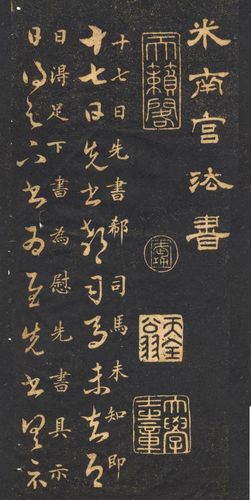 米南宫法書
天籟閣
天全翁
十七日先書郗司馬未知即
十七日先書郗司馬未去即
日得足下書為慰先書具示
日得足下書為慰先書具示